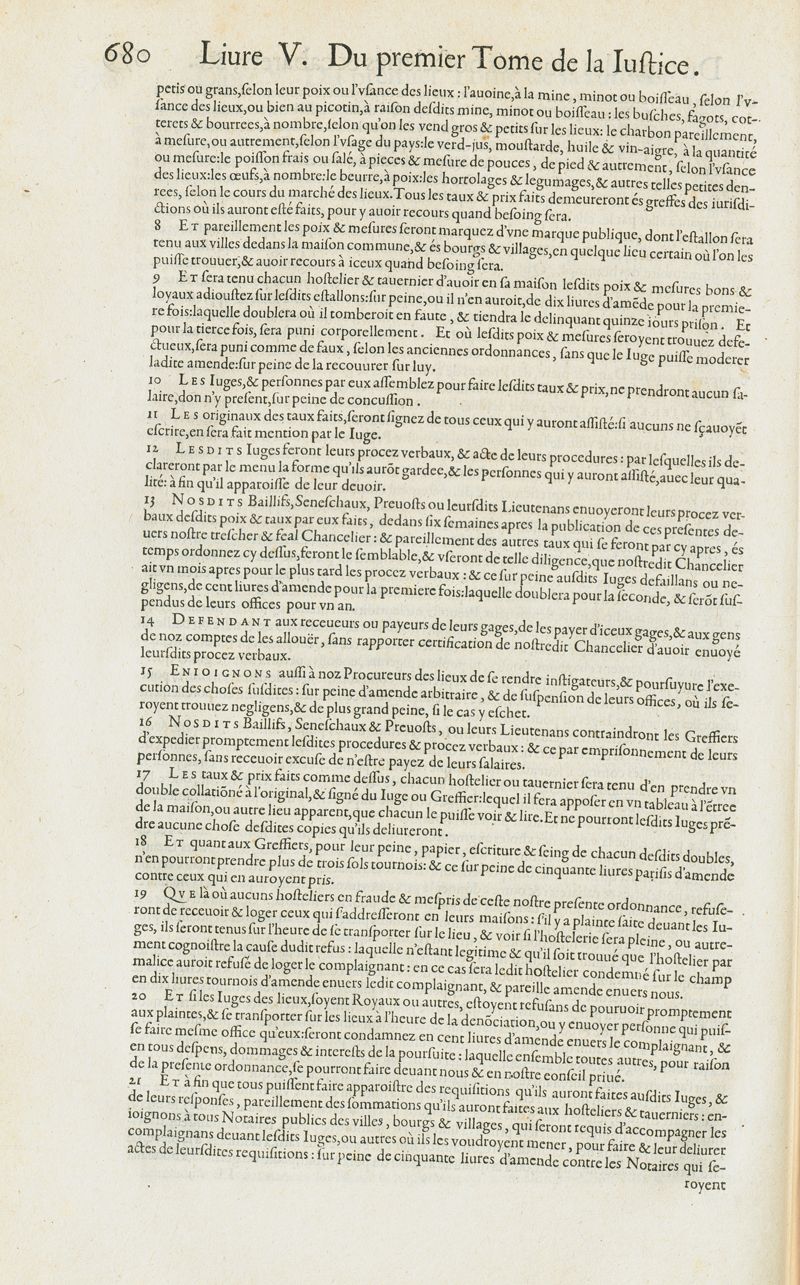 680 Liure V. Du premier Tome de la Iuſtice.
petis ou grans,ſelon leur poix ou l'vſance des lieux : l'auoine,à la mine, minot ou boiſſeau, ſelon l'v-
ſance des lieux,ou bien au picotin,à raiſon deſdits mine, minot ou boiſſeau : les buſches, fagots, cot-
terets & bourrees,à nombre,ſelon qu'on les vend gros & petits ſur les lieux: le charbon pareillement,
à meſure,ou autrement,ſelon l'vſage du pays:le verd-jus, mouſtarde, huile & vin-aigre, à la quantité
ou meſure:le poiſſon frais ou ſalé, à pieces & meſure de pouces, de pied & autrement, ſelon l'vſance
des lieux:les œufs,à nombre:le beurre,à poix:les hortolages & legumages,& autres telles petites den-
rees, ſelon le cours du marché des lieux.Tous les taux & prix faits demeureront és greffes des iuriſdi-
ctions où ils auront eſté faits, pour y auoir recours quand beſoing ſera.
8 ET pareillement les poix & meſures ſeront marquez d'vne marque publique, dont l'eſtallon ſera
tenu aux villes dedans la maiſon commune,& és bourgs & villages,en quelque lieu certain où l'on les
puiſſe trouuer,& auoir recours à iceux quand beſoing ſera.
9 ET ſera tenu chacun hoſtelier & tauernier d'auoir en ſa maiſon leſdits poix & meſures bons &
loyaux adiouſtez ſur leſdits eſtallons:ſur peine,ou il n'en auroit,de dix liures d'amēde pour la premie-
re fois:laquelle doublera où il tomberoit en faute, & tiendra le delinquant quinze iours priſon. Et
pour la tierce fois, ſera puni corporellement. Et où leſdits poix & meſures ſeroyent trouuez defe-
ctueux,ſera puni comme de faux, ſelon les anciennes ordonnances, ſans que le Iuge puiſſe moderer
ladite amende:ſur peine de la recouurer ſur luy.
10 LES Iuges,& perſonnes par eux aſſemblez pour faire leſdits taux & prix,ne prendront aucun ſa-
laire,don n'y preſent,ſur peine de concuſſion.
11 LES originaux des taux faits,ſeront ſignez de tous ceux qui y auront aſſiſté:ſi aucuns ne ſçauoyēt
eſcrire,en ſera fait mention par le Iuge.
12 LESDITS Iuges feront leurs procez verbaux, & acte de leurs procedures : par leſquelles ils de-
clareront par le menu la forme qu'ils aurōt gardee,& les perſonnes qui y auront aſſiſté,auec leur qua-
lité: à fin qu'il apparoiſſe de leur deuoir.
13 NOSDITS Baillifs,Seneſchaux, Preuoſts ou leurſdits Lieutenans enuoyeront leurs procez ver-
baux deſdits poix & taux par eux faits, dedans ſix ſemaines apres la publication de ces preſentes de-
uers noſtre treſcher & feal Chancelier : & pareillement des autres taux qui ſe feront par cy apres, és
temps ordonnez cy deſſus,feront le ſemblable,& vſeront de telle diligence,que noſtredit Chancelier
ait vn mois apres pour le plus tard les procez verbaux : & ce ſur peine auſdits Iuges defaillans ou ne-
gligens,de cent liures d'amende pour la premiere fois:laquelle doublera pour la ſeconde, & ſerōt ſuſ-
pendus de leurs offices pour vn an.
14 DEFENDANT aux receueurs ou payeurs de leurs gages,de les payer d'iceux gages,& aux gens
de noz comptes de les allouër, ſans rapporter certification de noſtredit Chancelier d'auoir enuoyé
leurſdits procez verbaux.
15 ENIOIGNONS auſſi à noz Procureurs des lieux de ſe rendre inſtigateurs,& pourſuyure l'exe-
cution des choſes ſuſdites : ſur peine d'amende arbitraire, & de ſuſpenſion de leurs offices, où ils ſe-
royent trouuez negligens,& de plus grand peine, ſi le cas y eſchet.
16 NOSDITS Baillifs, Seneſchaux & Preuoſts, ou leurs Lieutenans contraindront les Greffiers
d'expedier promptement leſdites procedures & procez verbaux : & ce par empriſonnement de leurs
perſonnes, ſans receuoir excuſe de n'eſtre payez de leurs ſalaires.
17 LES taux & prix faits comme deſſus, chacun hoſtelier ou tauernier ſera tenu d'en prendre vn
double collationé à l'original,& ſigné du Iuge ou Greffier:lequel il fera appoſer en vn tableau à l'étree
de la maiſon,ou autre lieu apparent,que chacun le puiſſe voir & lire.Et ne pourront leſdits Iuges pré-
dre aucune choſe deſdites copies qu'ils deliureront.
18 ET quant aux Greffiers, pour leur peine, papier, eſcriture & ſeing de chacun deſdits doubles,
n'en pourront prendre plus de trois ſols tournois: & ce ſur peine de cinquante liures pariſis d'amende
contre ceux qui en auroyent pris.
19 QVE là où aucuns hoſteliers en fraude & meſpris de ceſte noſtre preſente ordonnance, refuſe-
ront de receuoir & loger ceux qui ſ'addreſſeront en leurs maiſons : ſ'il y a plainte faite deuant les Iu-
ges, ils ſeront tenus ſur l'heure de ſe tranſporter ſur le lieu, & voir ſi l'hoſtelerie ſera pleine, ou autre-
ment cognoiſtre la cauſe dudit refus : laquelle n'eſtant legitime & qu'il ſoit trouué que l'hoſtelier par
malice auroit refuſé de loger le complaignant : en ce cas ſera ledit hoſtelier condemné ſur le champ
en dix liures tournois d'amende enuers ledit complaignant, & pareille amende enuers nous.
20 ET ſi les Iuges des lieux,ſoyent Royaux ou autres, eſtoyent refuſans de pouruoir promptement
aux plaintes,& ſe tranſporter ſur les lieux à l'heure de la denōciation,ou y enuoyer perſonne qui puiſ-
ſe faire meſme office qu'eux:ſeront condamnez en cent liures d'amende enuers le complaignant, &
en tous deſpens, dommages & intereſts de la pourſuite : laquelle enſemble toutes autres, pour raiſon
de la preſente ordonnance,ſe pourront faire deuant nous & en noſtre conſeil priué.
21 ET à fin que tous puiſſent faire apparoiſtre des requiſitions qu'ils auront faites auſdits Iuges, &
de leurs reſponſes, pareillement des ſommations qu'ils auront faites aux hoſteliers & tauerniers : en-
ioignons à tous Notaires publics des villes, bourgs & villages, qui ſeront requis d'accompagner les
complaignans deuant leſdits Iuges,ou autres où ils les voudroyent mener, pour faire & leur deliurer
actes de leurſdites requiſitions : ſur peine de cinquante liures d'amende contre les Notaires qui ſe-
royent